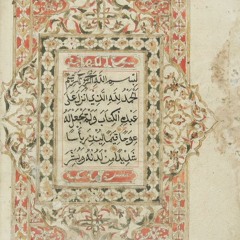 بسم الله الرحمن الرحيم
الحمد لله الذي انزل على
عبده الكتاب ولم يجعل له
عوجا قيما لينذر بأسا
شديدا من لدنه ويبشر